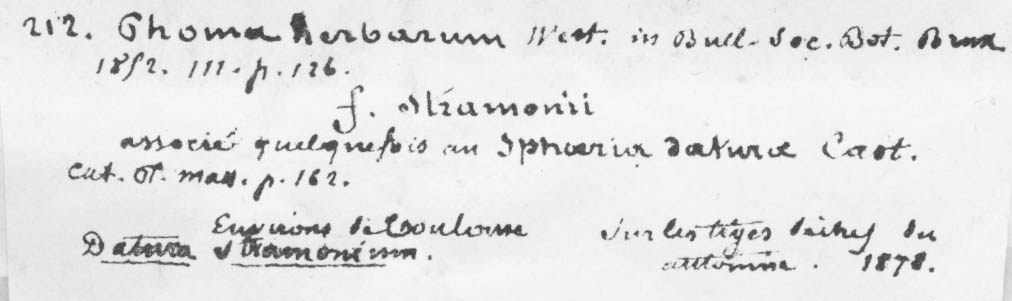 212. Phoma herbarum West. in Bull. Soc. Bot. Brux
1852. III. p. 126.
f. Stramonii
associé quelquefois au Sphaeria daturae Cast.
Cat. Pl. mars. p. 162.
Environs de Toulouse Sur les tiges sèches du
Datura Stramonium. automne. 1878.